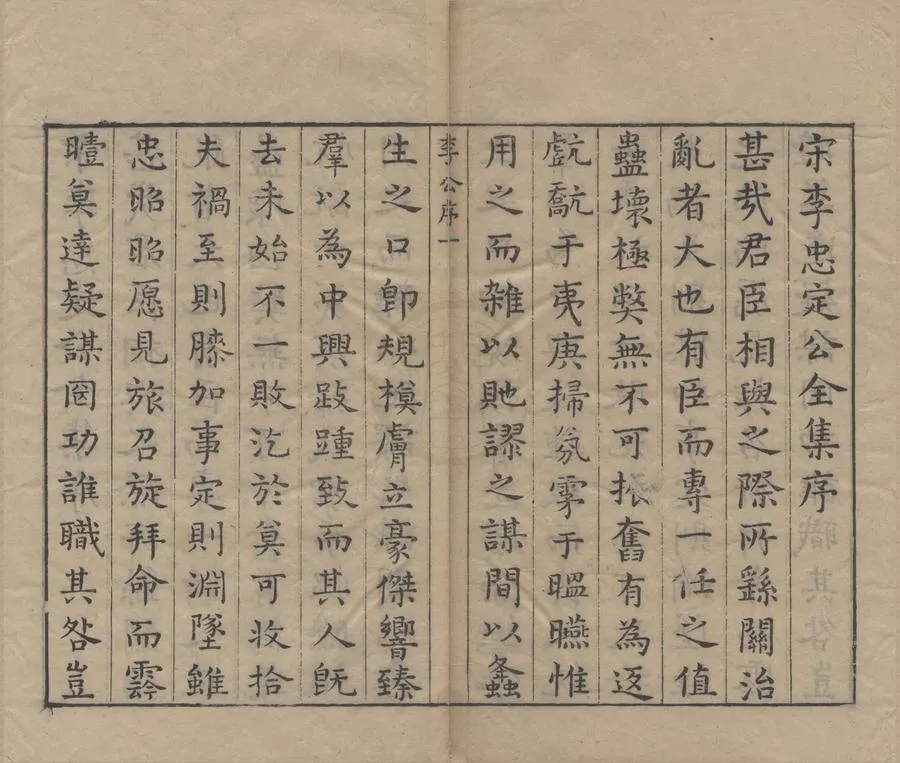 宋李忠定公全集序
甚㢤君臣相與之際所繇關治
亂者大也有臣而專一任之值
蠱壞極獘無不可振奮有為返
虧歊于夷庚掃氛雺于昷曣惟
用之而雜以貤謬之謀間以螽
李公序一
生之口卽規模膚立豪傑響臻
羣以為中興跂踵致而其人旣
去未始不一敗汔於莫可收拾
夫禍至則膝加事定則淵墜雖
忠昭昭愿見旅召旋拜命而霛
曀莫達疑謀罔功誰職其咎豈